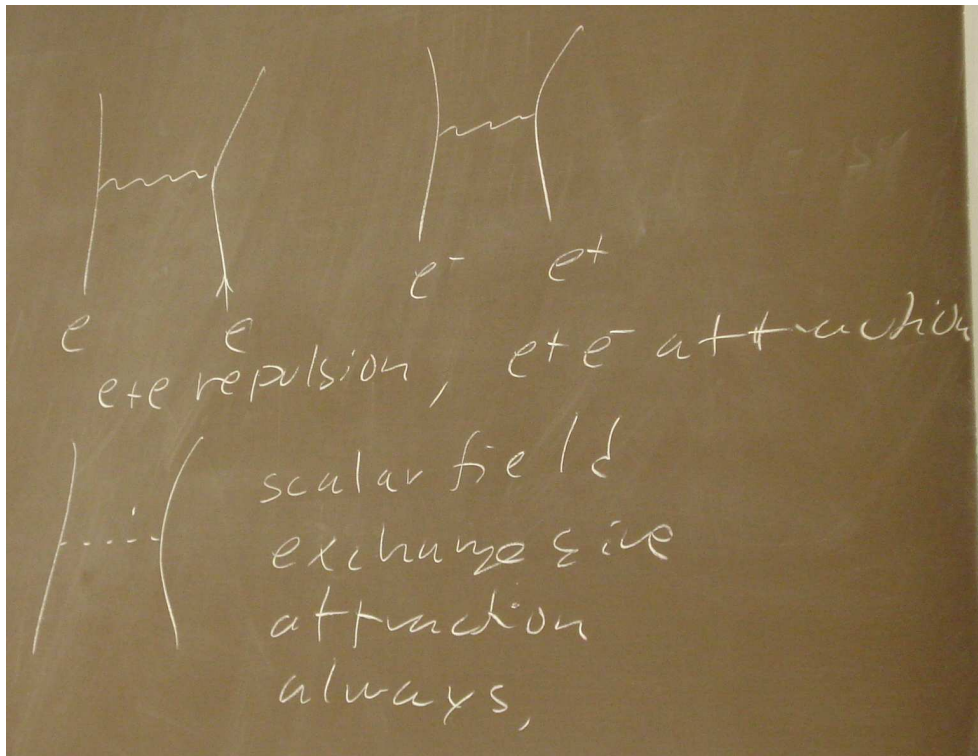 e e e⁻ e⁺
e+e repulsion, e⁺e⁻ attraction
scalar field
exchange give
attraction
always,